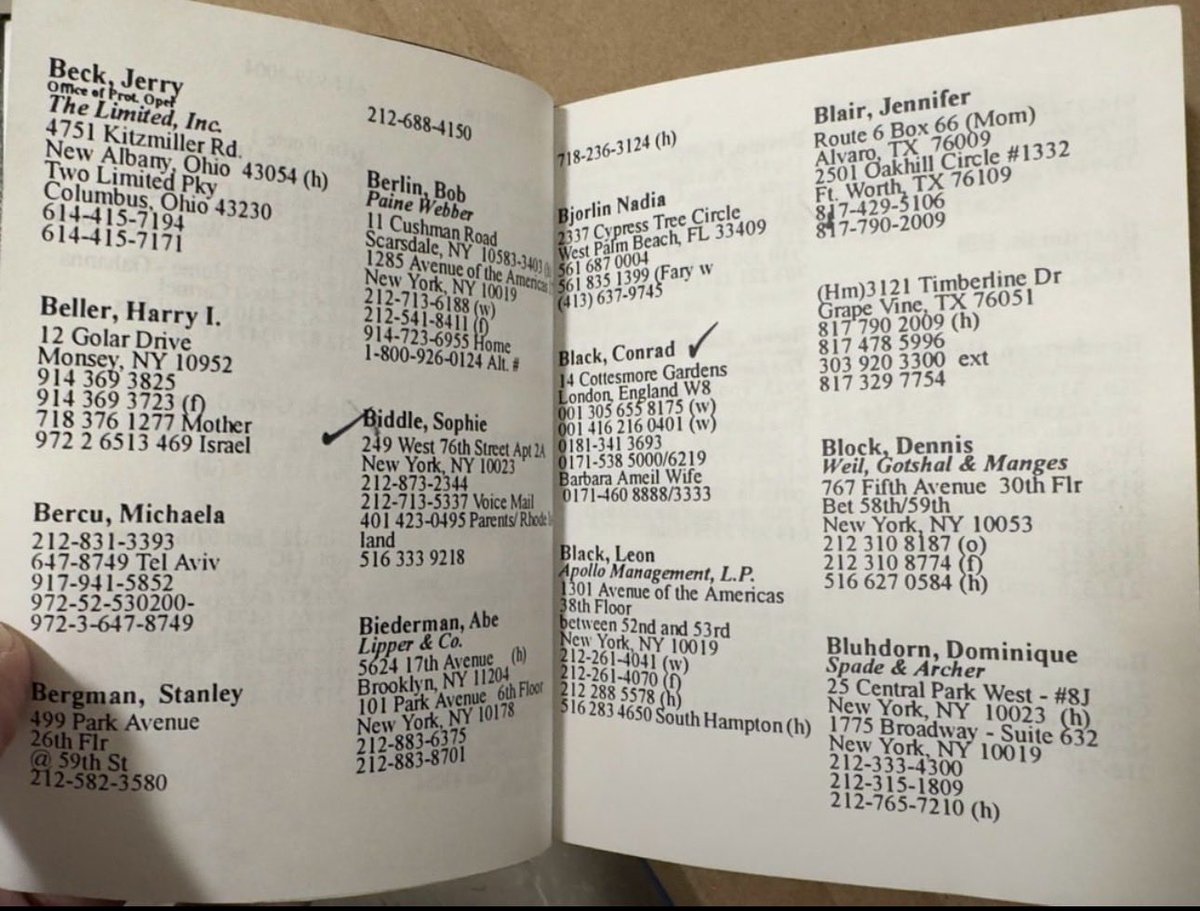 Beck, Jerry
Office of Prot. Oper
The Limited, Inc.
4751 Kitzmiller Rd.
New Albany, Ohio 43054 (h)
Two Limited Pky
Columbus, Ohio 43230
614-415-7194
614-415-7171
Beller, Harry I.
12 Golar Drive
Monsey, NY 10952
914 369 3825
914 369 3723 (f)
718 376 1277 Mother
972 2 6513 469 Israel
Bercu, Michaela
212-831-3393
647-8749 Tel Aviv
917-941-5852
972-52-530200-
972-3-647-8749
Bergman, Stanley
499 Park Avenue
26th Flr
@ 59th St
212-582-3580
212-688-4150
Berlin, Bob
Paine Webber
11 Cushman Road
Scarsdale, NY 10583-3403
1285 Avenue of the Americas
New York, NY 10019
212-713-6188 (w)
212-541-8411 (f)
914-723-6955 Home
1-800-926-0124 Alt. #
Biddle, Sophie
249 West 76th Street Apt 2A
New York, NY 10023
212-873-2344
212-713-5337 Voice Mail
401 423-0495 Parents/ Rhode
land
516 333 9218
Biederman, Abe
Lipper & Co.
5624 17th Avenue (h)
Brooklyn, NY 11204
101 Park Avenue 6th Floor
New York, NY 10178
212-883-6375
212-883-8701
718-236-3124 (h)
Bjorlin Nadia
2337 Cypress Tree Circle
West Palm Beach, FL 33409
561 687 0004
561 835 1399 (Fary w
(413) 637-9745
Black, Conrad
14 Cottesmore Gardens
London, England W8
001 305 655 8175 (w)
001 416 216 0401 (w)
0181-341 3693
0171-538 5000/6219
Barbara Ameil Wife
0171-460 8888/3333
Black, Leon
Apollo Management, L.P.
1301 Avenue of the Americas
38th Floor
between 52nd and 53rd
New York, NY 10019
212-261-4041 (w)
212-261-4070 (f)
212 288 5578 (h)
516 283 4650 South Hampton (h)
Blair, Jennifer
Route 6 Box 66 (Mom)
Alvaro, TX 76009
2501 Oakhill Circle #1332
Ft. Worth, TX 76109
817-429-5106
817-790-2009
(Hm)3121 Timberline Dr
Grape Vine, TX 76051
817 790 2009 (h)
817 478 5996
303 920 3300 ext
817 329 7754
Block, Dennis
Weil, Gotshal & Manges
767 Fifth Avenue 30th Flr
Bet 58th/59th
New York, NY 10053
212 310 8187 (o)
212 310 8774 (f)
516 627 0584 (h)
Bluhdorn, Dominique
Spade & Archer
25 Central Park West - #8J
New York, NY 10023 (h)
1775 Broadway - Suite 632
New York, NY 10019
212-333-4300
212-315-1809
212-765-7210 (h)